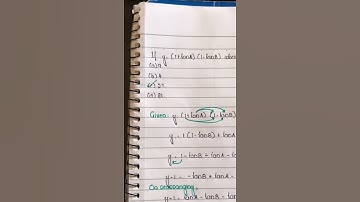 If y = (1+tanA) (1-tanB)
(a) 9
(b) 4
(c) 27
(d) 81
Given: y = (1+tanA) (1-tanB)
y = 1 (1-tanB) + tanA
y = 1 - tanB + tanA -
y-1 = -tanB + tanA -
On rearranging,
y-1 = tanA - tanB -